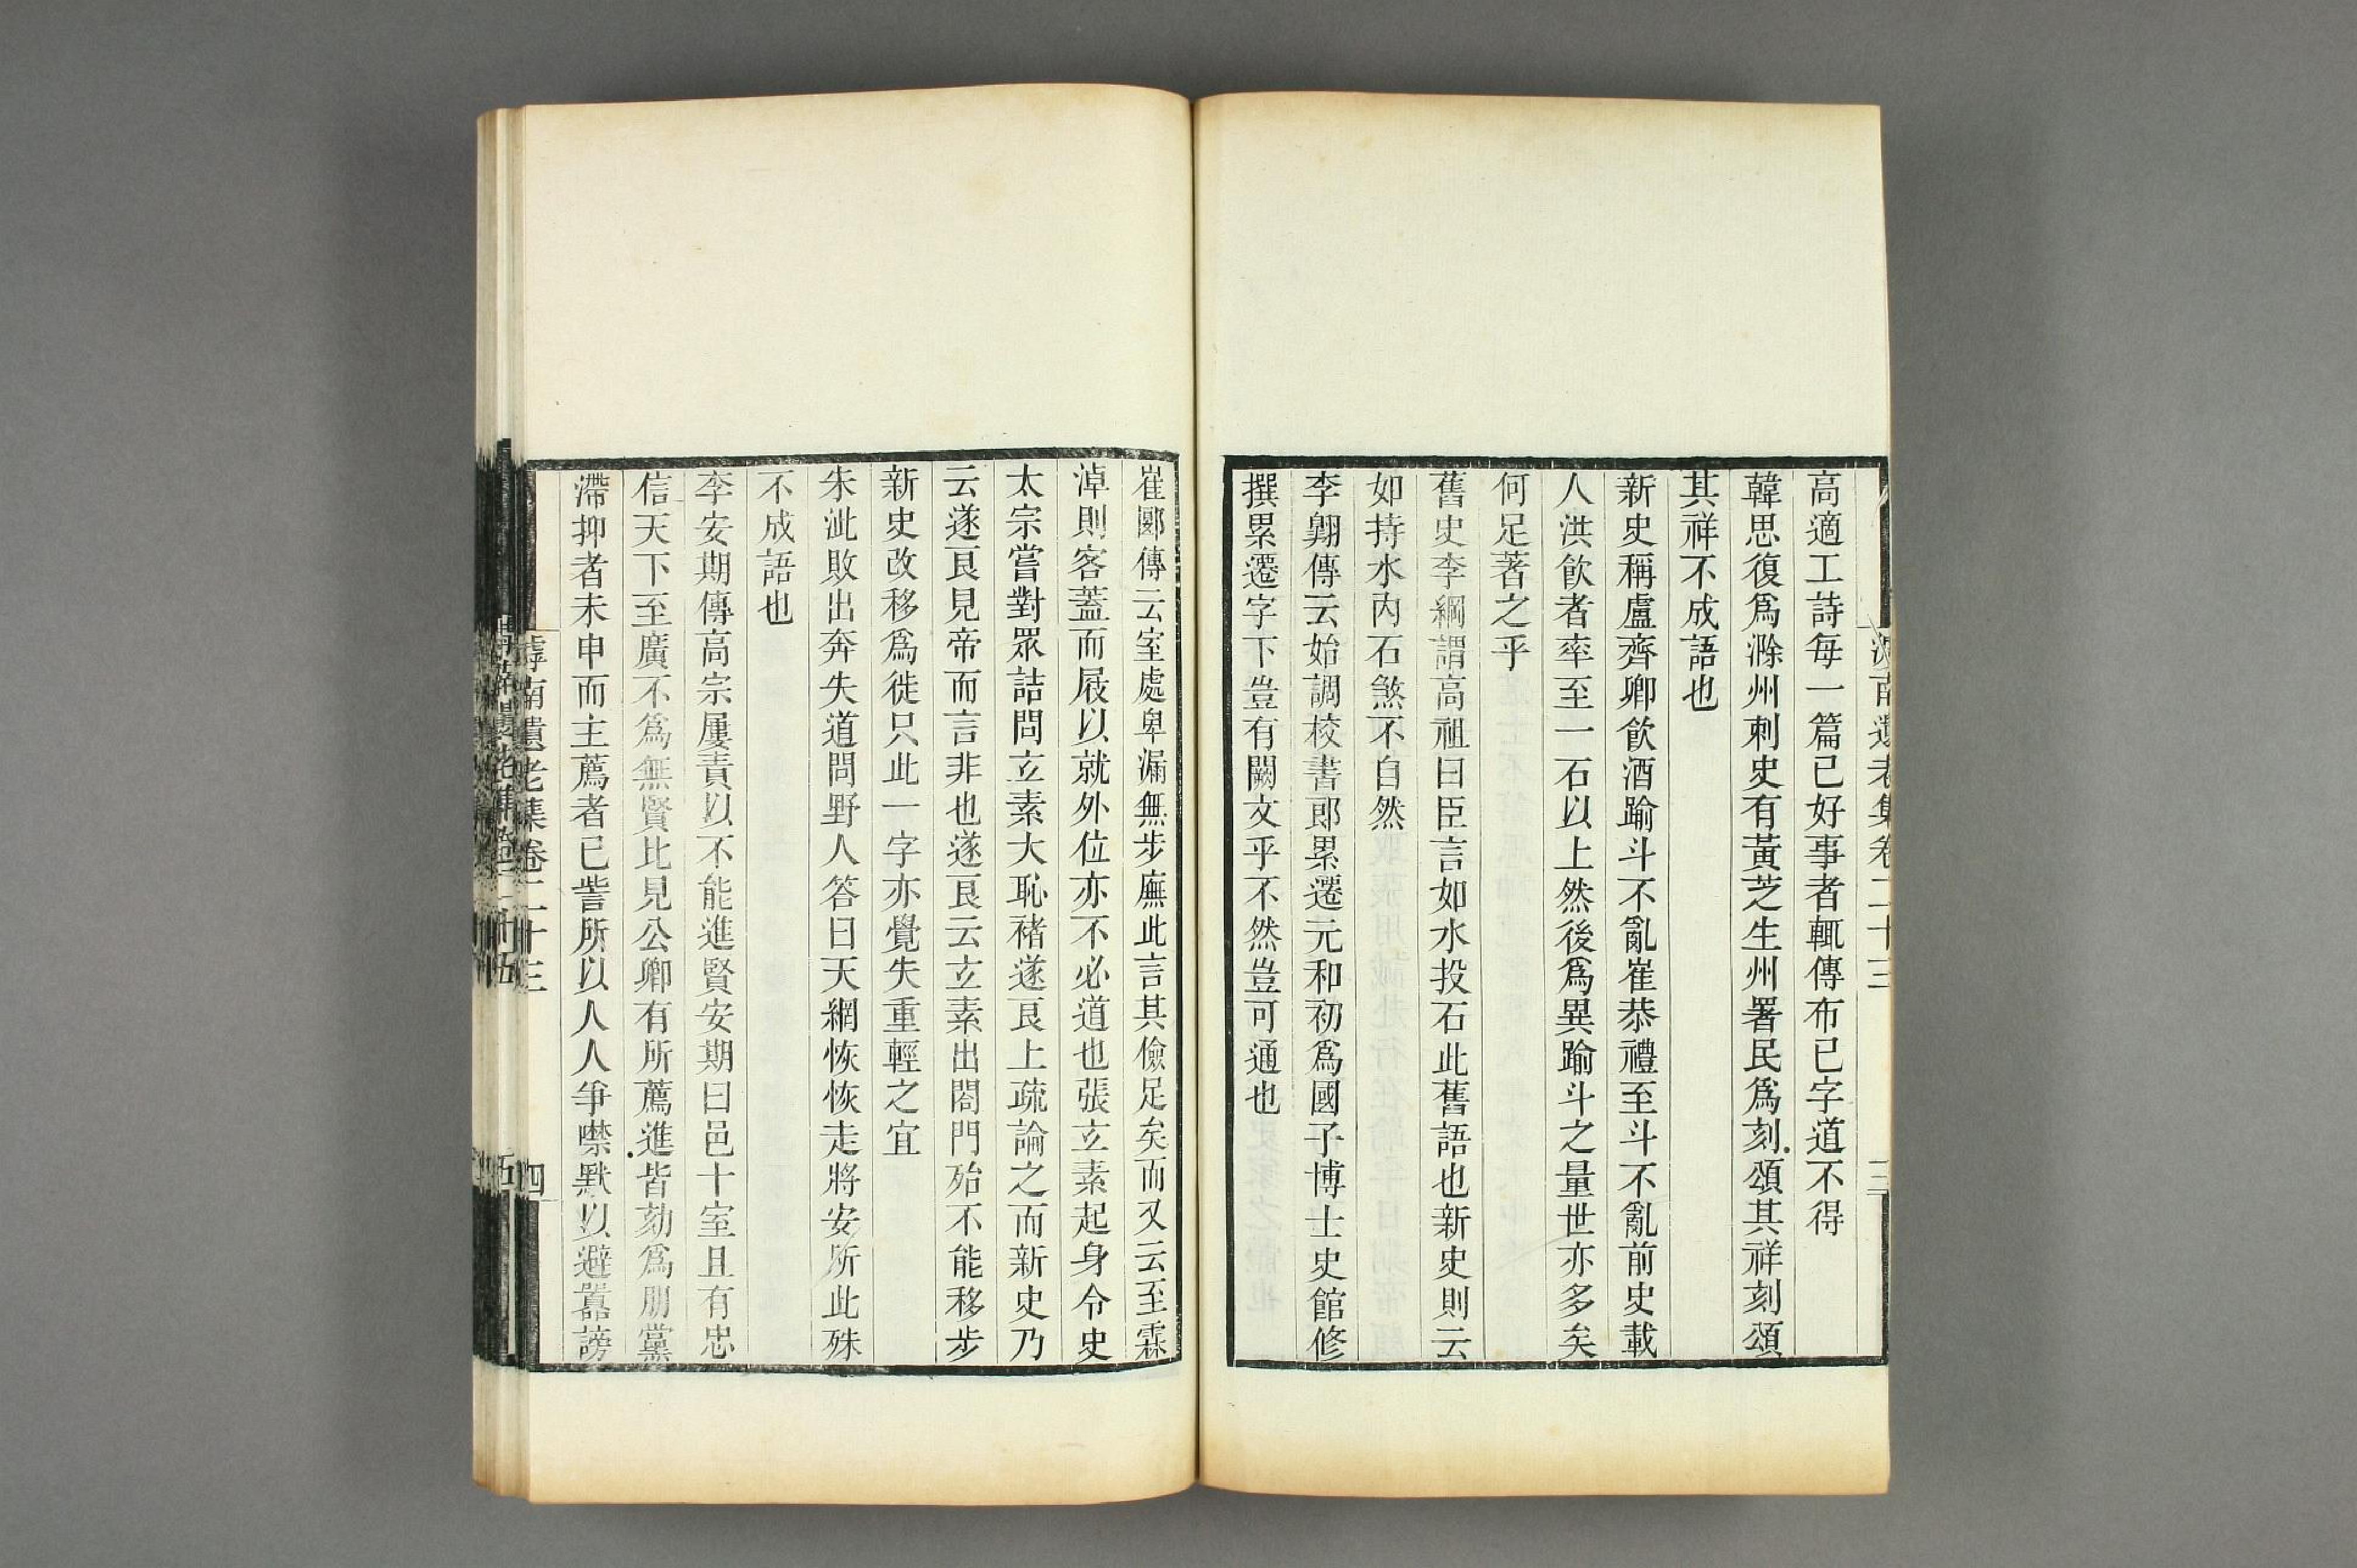 高適工詩每一篇已好事者輒傳布已字道不得
韓思復爲滁州刺史有黃芝生州署民爲刻頌其祥刻頌
其祥不成語也
新史稱盧齊卿飮酒踰斗不亂崔恭禮至斗不亂前史載
人洪飮者率至一石以上然後爲異踰斗之量世亦多矣
何足著之乎
舊史李綱謂高祖曰臣言如水投石此舊語也新史則云
如持水內石煞不自然
李翺傳云始調校書郎累遷元和初爲國子博士史館修
撰累遷字下豈有闕文乎不然豈可通也
崔郾傳云室處卑漏無步廡此言其儉足矣而又云至霖
淖則客蓋而屐以就外位亦不必道也張玄素起身令史
太宗嘗對眾詰問玄素大恥褚遂良上疏論之而新史乃
云遂良見帝而言非也遂良云玄素出閤門殆不能移步
新史改移爲徙只此一字亦覺失重輕之宜
朱泚敗出奔失道問野人答曰天網恢恢走將安所此殊
不成語也
李安期傳高宗屢責以不能進賢安期曰邑十室且有忠
信天下至廣不爲無賢比見公卿有所薦進皆劾爲朋黨
滯抑者未申而主薦者已訾所以人人爭噤默以避囂謗
滹南遺老集卷二十三
四